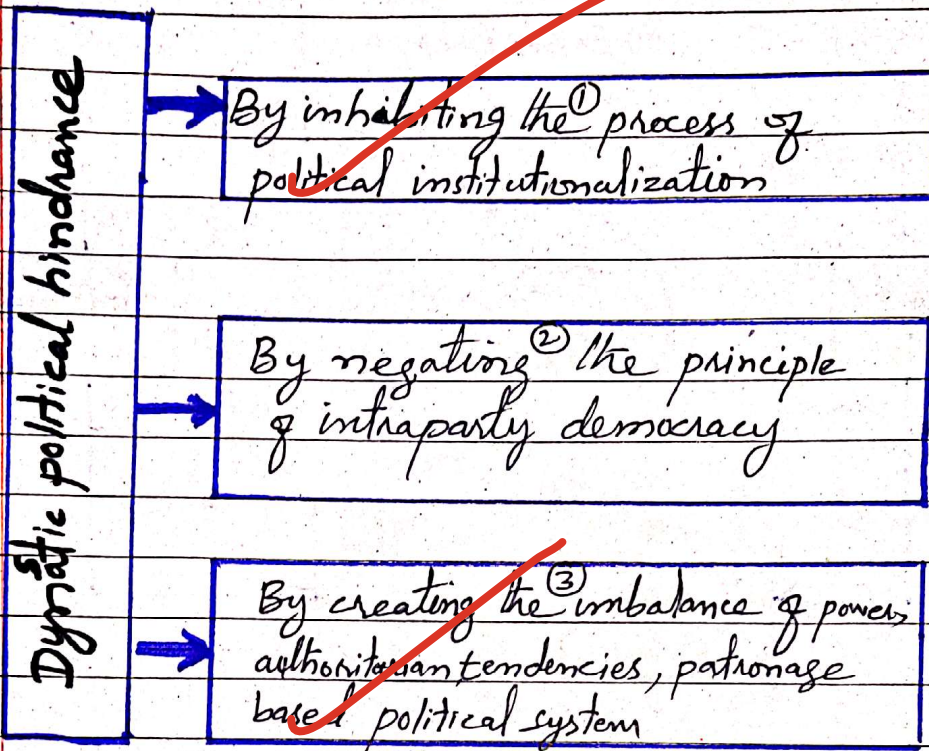 Dynastic political hindrance
By inhibiting the ① process of
political institutionalization
By negating ② the principle
of intraparty democracy
By creating the ③ imbalance of powers,
authoritarian tendencies, patronage
based political system